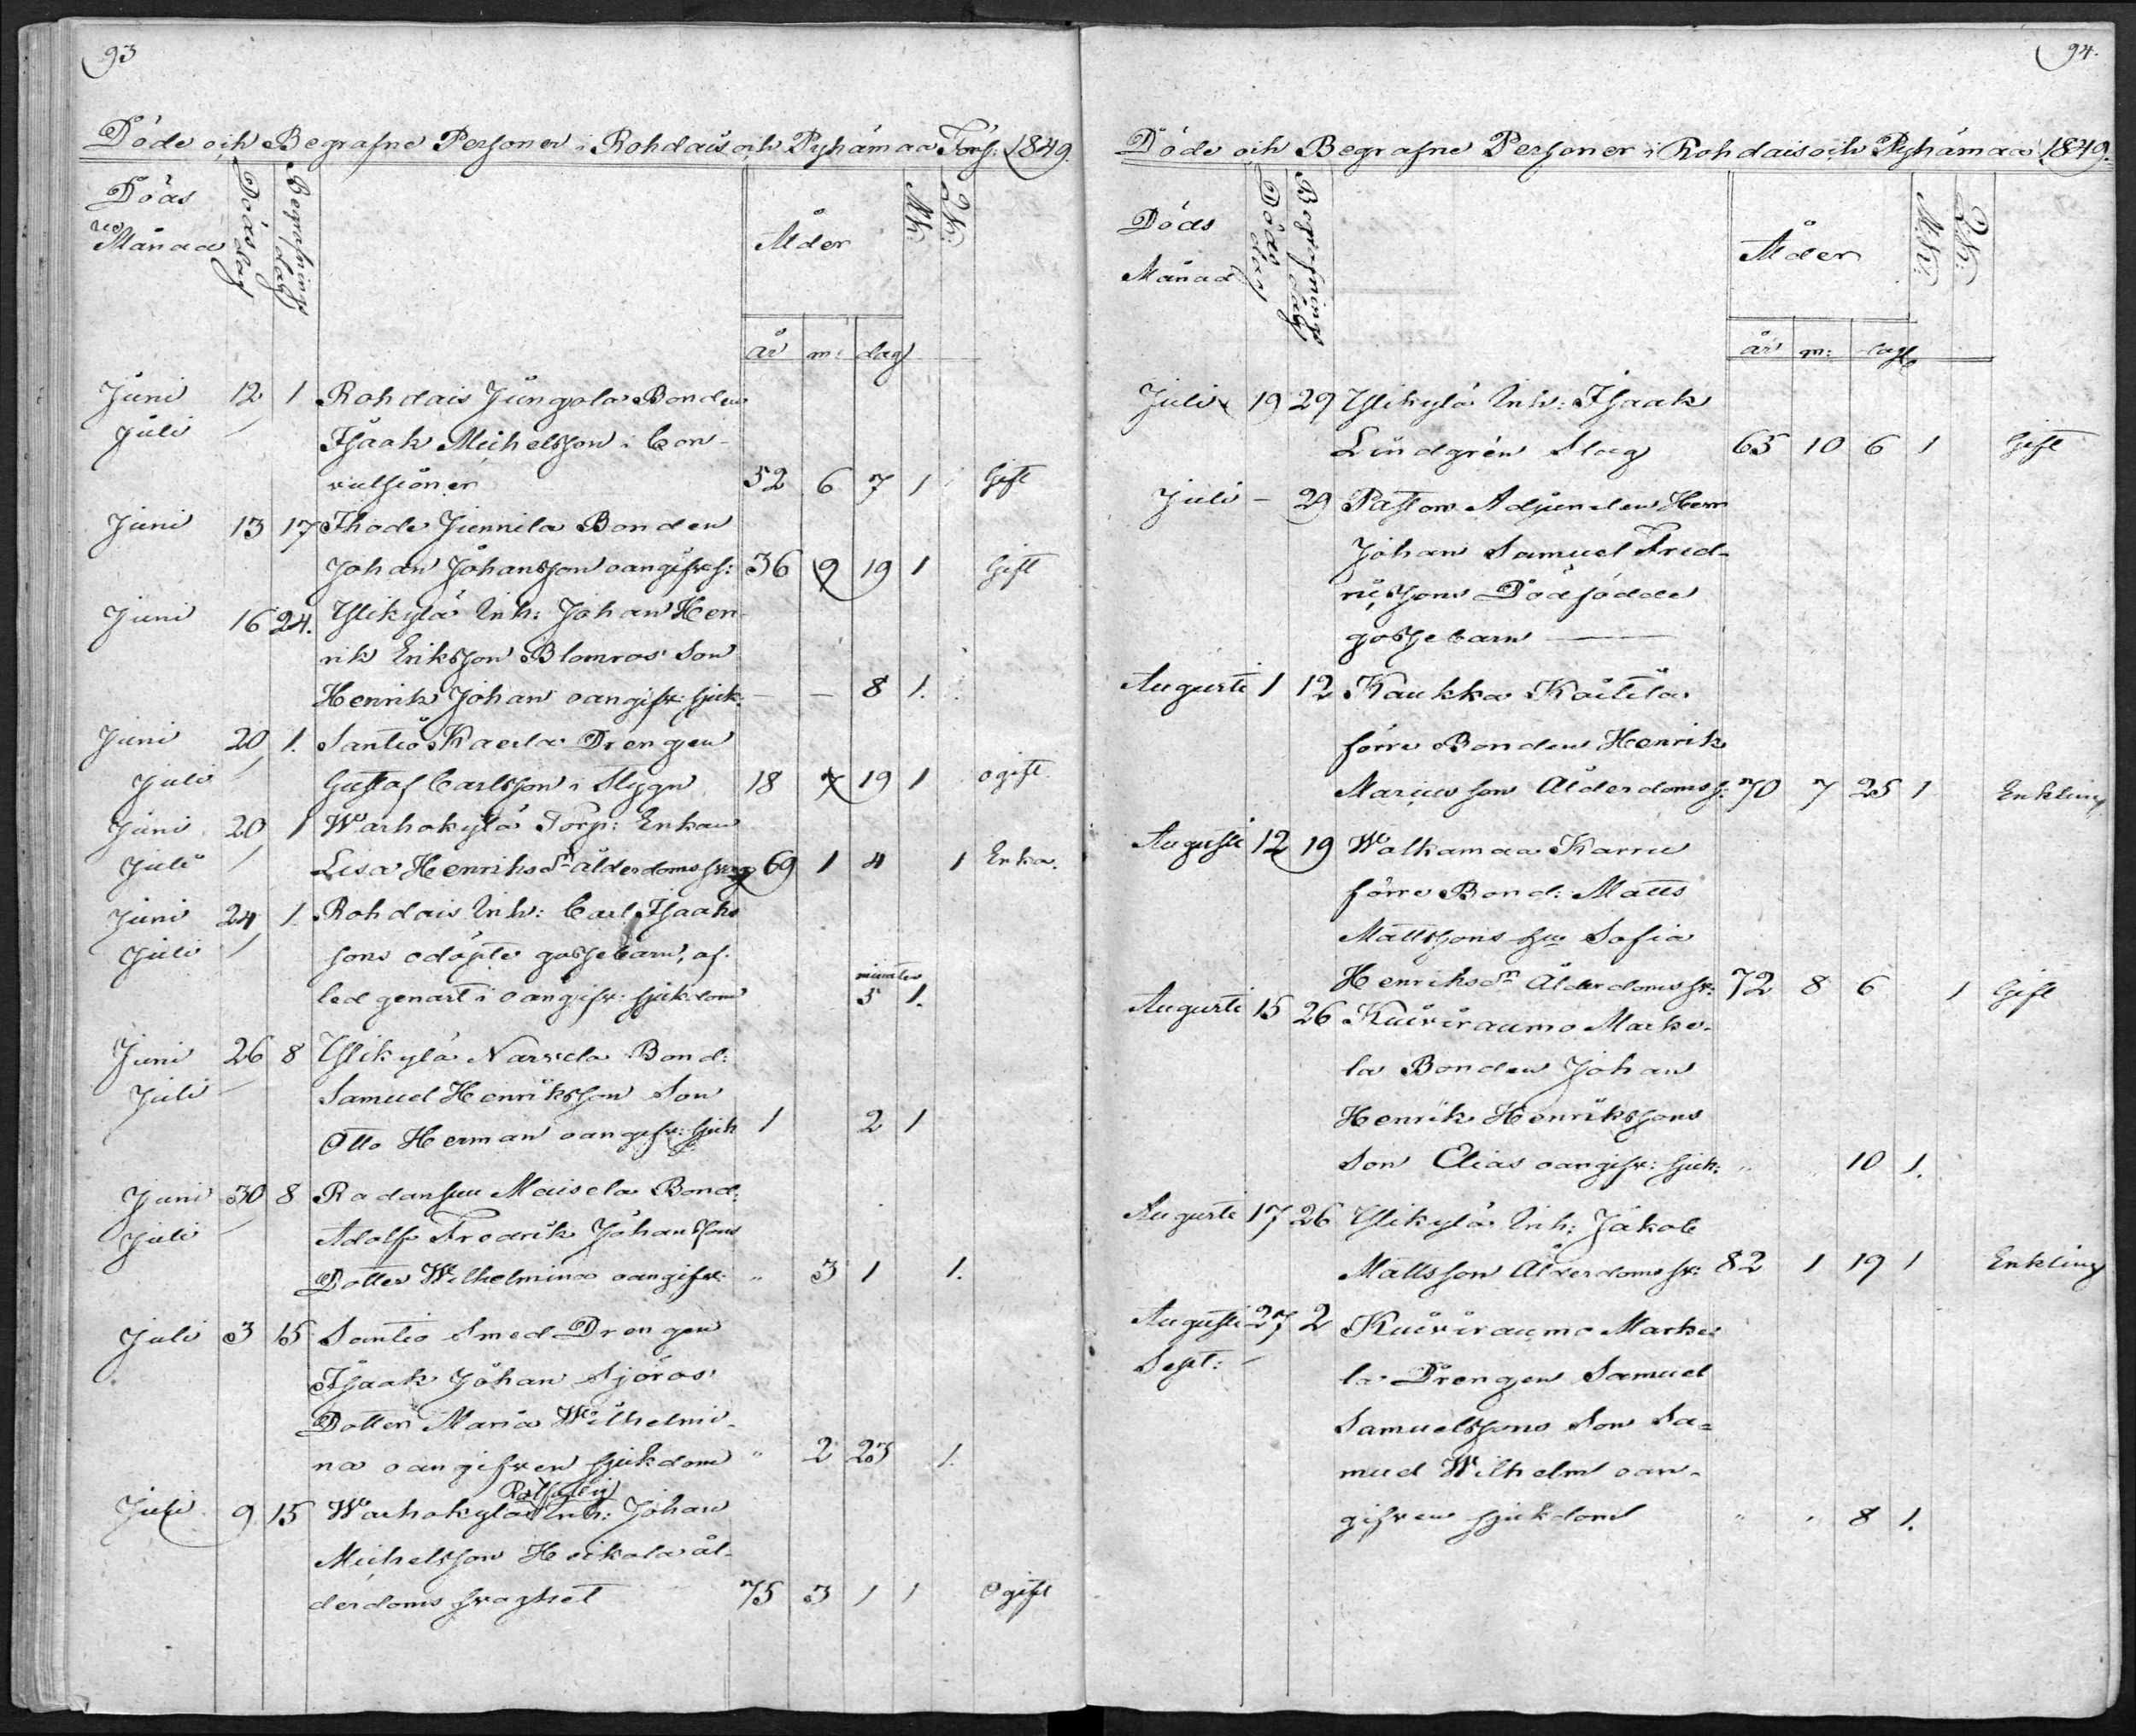 93
Döde och Begrafne Personer i Rohdais och Pyhämaa Förs: 1849.
Döds Månad Dödsdag Begrafnings dag Ålder Mk: Qk:
år m: dag
Juni 12 1 Rohdais Jungola Bonden
Juli Isaak Michelsson i Con-
vulsioner 52 6 7 1 Gift
Juni 13 17 Ihode Junnila Bonden
Johan Johansson oangifv s: 36 9 19 1 Gift
Juni 16 24. Ylikylä Inh: Johan Hen-
rik Eriksson Blomros Son
Henrik Johan oangifv: sjuk: — — 8 1.
Juni 20 1. Santio Kaela Drengen
Juli Gustaf Carlsson i Stygn 18 7 19 1 ogift
Juni 20 1 Warhokylä Torp: Enkan
Juli Lisa Henriksdr ålderdoms svag 69 1 4 1 Enka.
Juni 24 1. Rohdais Inh: Carl Isaaks
Juli sons odöpte gossebarn, af-
led genast i oangifv: sjukdom minuter 5 1.
Juni 26 8 Ylikylä Narvela Bond:
Juli Samuel Henriksson Son
Otto Herman oangifv: sjuk 1 2 1
Juni 30 8 Radansuu Maisela Bond:
Juli Adolf Fredrik Johanssons
Dotter Wilhelmina oangifv: " 3 1 1.
Juli 3 15 Santio Smed Drengen
Isaak Johan Sjöros
Dotter Maria Wilhelmi-
na oangifven sjukdom " 2 23 1.
Juli 9 15 Warhokylä Inh: Johan
Michelsson Heikola ål-
derdoms svaghet 75 3 1 1 Ogift
94.
Döde och Begrafne Personer i Rohdais och Pyhämaa 1849.
Döds Månad Döds dag Begrafnings dag Ålder M.k: Q.k:
år m: dag
Juli 19 29 Ylikylä Inh: Isaak
Lindgrén Slag 65 10 6 1 Gift
Juli - 29 Pastors Adjuncten Herr
Johan Samuel Fred-
ricssons Dödfödde
gossebarn —
Augusti 1 12 Kaukka Kailila
förre Bonden Henrik
Mariusson Ålderdoms s: 70 7 25 1 Enkling
Augusti 12 19 Walkamaa Karru
förre Bond: Matts
Mattssons hu Sofia
Henriksdr Ålderdoms sv: 72 8 6 1 Gift
Augusti 15 26 Kuiviraumo Marke-
la Bonden Johan
Henrik Henrikssons
Son Elias oangifv: sjuk: " 10 1.
Augusti 17 26 Ylikylä Inh: Jakob
Mattsson Ålderdoms sv: 82 1 19 1 Enkling
Augusti 27 2 Kuiviraumo Marke-
Sept: la Drengen Samuel
Samuelssons Son Sa=
muel Wilhelm oan-
gifven sjukdom " " 8 1.